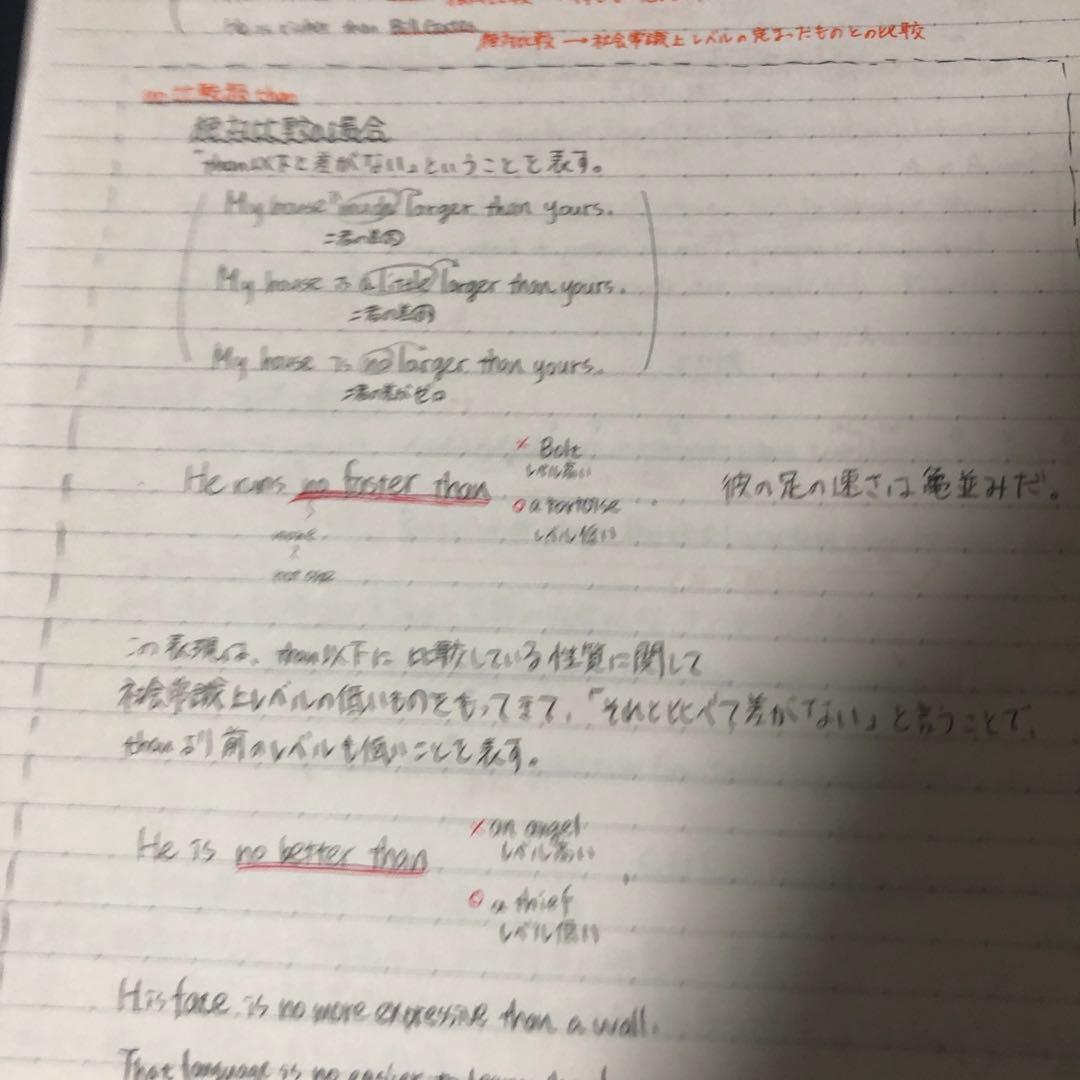 He is richer than Bill Gates.
絶対比較 → 社会常識上レベルの定まったものとの比較
no 比較級 than
絶対比較の場合
「than以下と差がない」ということを表す。
My house is much larger than yours.
My house is a little larger than yours.
My house is no larger than yours.
差がゼロ
He runs no faster than
× Bolt
レベル高い
○ a tortoise
レベル低い
彼の足の速さは亀並みだ。
この表現は、than以下に比較している性質に関して
社会常識上レベルの低いものをもってきて、「それと比べて差がない」と言うことで、
thanより前のレベルも低いことを表す。
He is no better than
× an angel
レベル高い
○ a thief
レベル低い
His face is no more expressive than a wall.
That language is no easier to learn